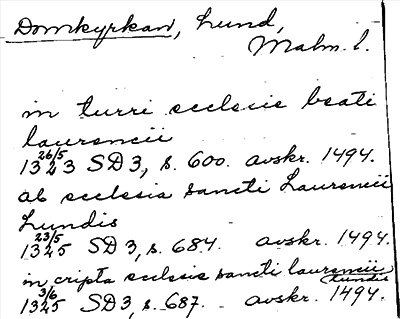 Domkyrkan, Lund,
Malm. l.
in turri ecclesie beati
laurencii
1323 26/5 SD 3, s. 600. avskr. 1494.
ab ecclesia sancti Laurencii
Lundis
1325 23/5 SD 3, s. 684. avskr. 1494.
in cripta ecclesie sancti laurencii lundis
1325 3/6 SD 3, s. 687. avskr. 1494.